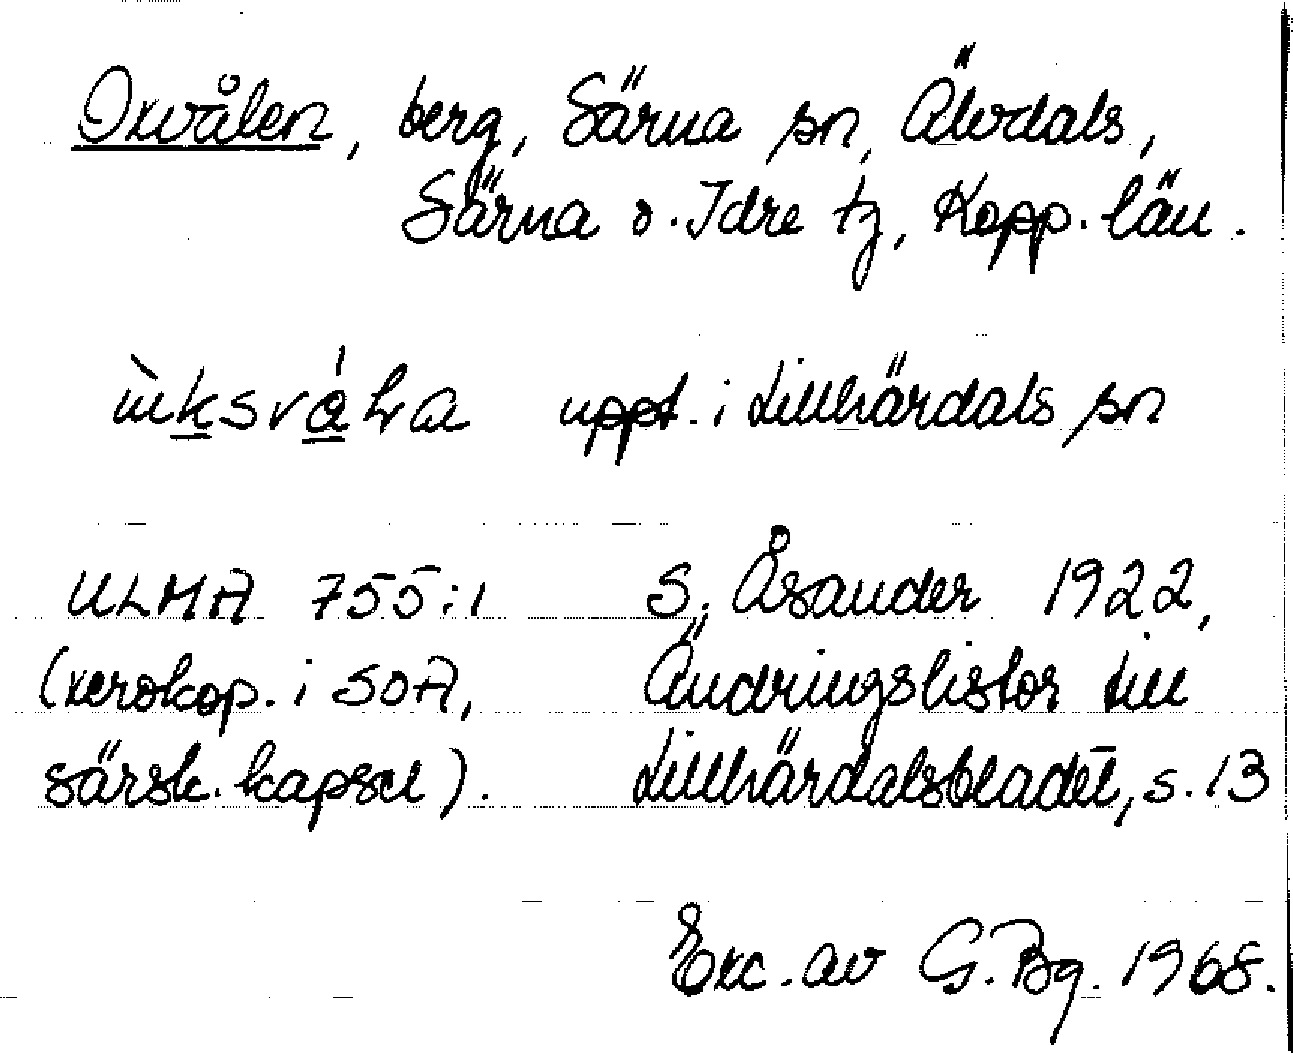 Oxvålen, berg, Särna sn, Älvdals,
Särna o. Idre tg, Kopp. län.
uppt. i Lillhärdals sn
ULMA 755:1 S. Åsander 1922,
(xerokop. i SOA, Ändringslistor till
särsk. kapsel). Lillhärdalsbladet, s. 13
Exc. av G. Bg. 1968.